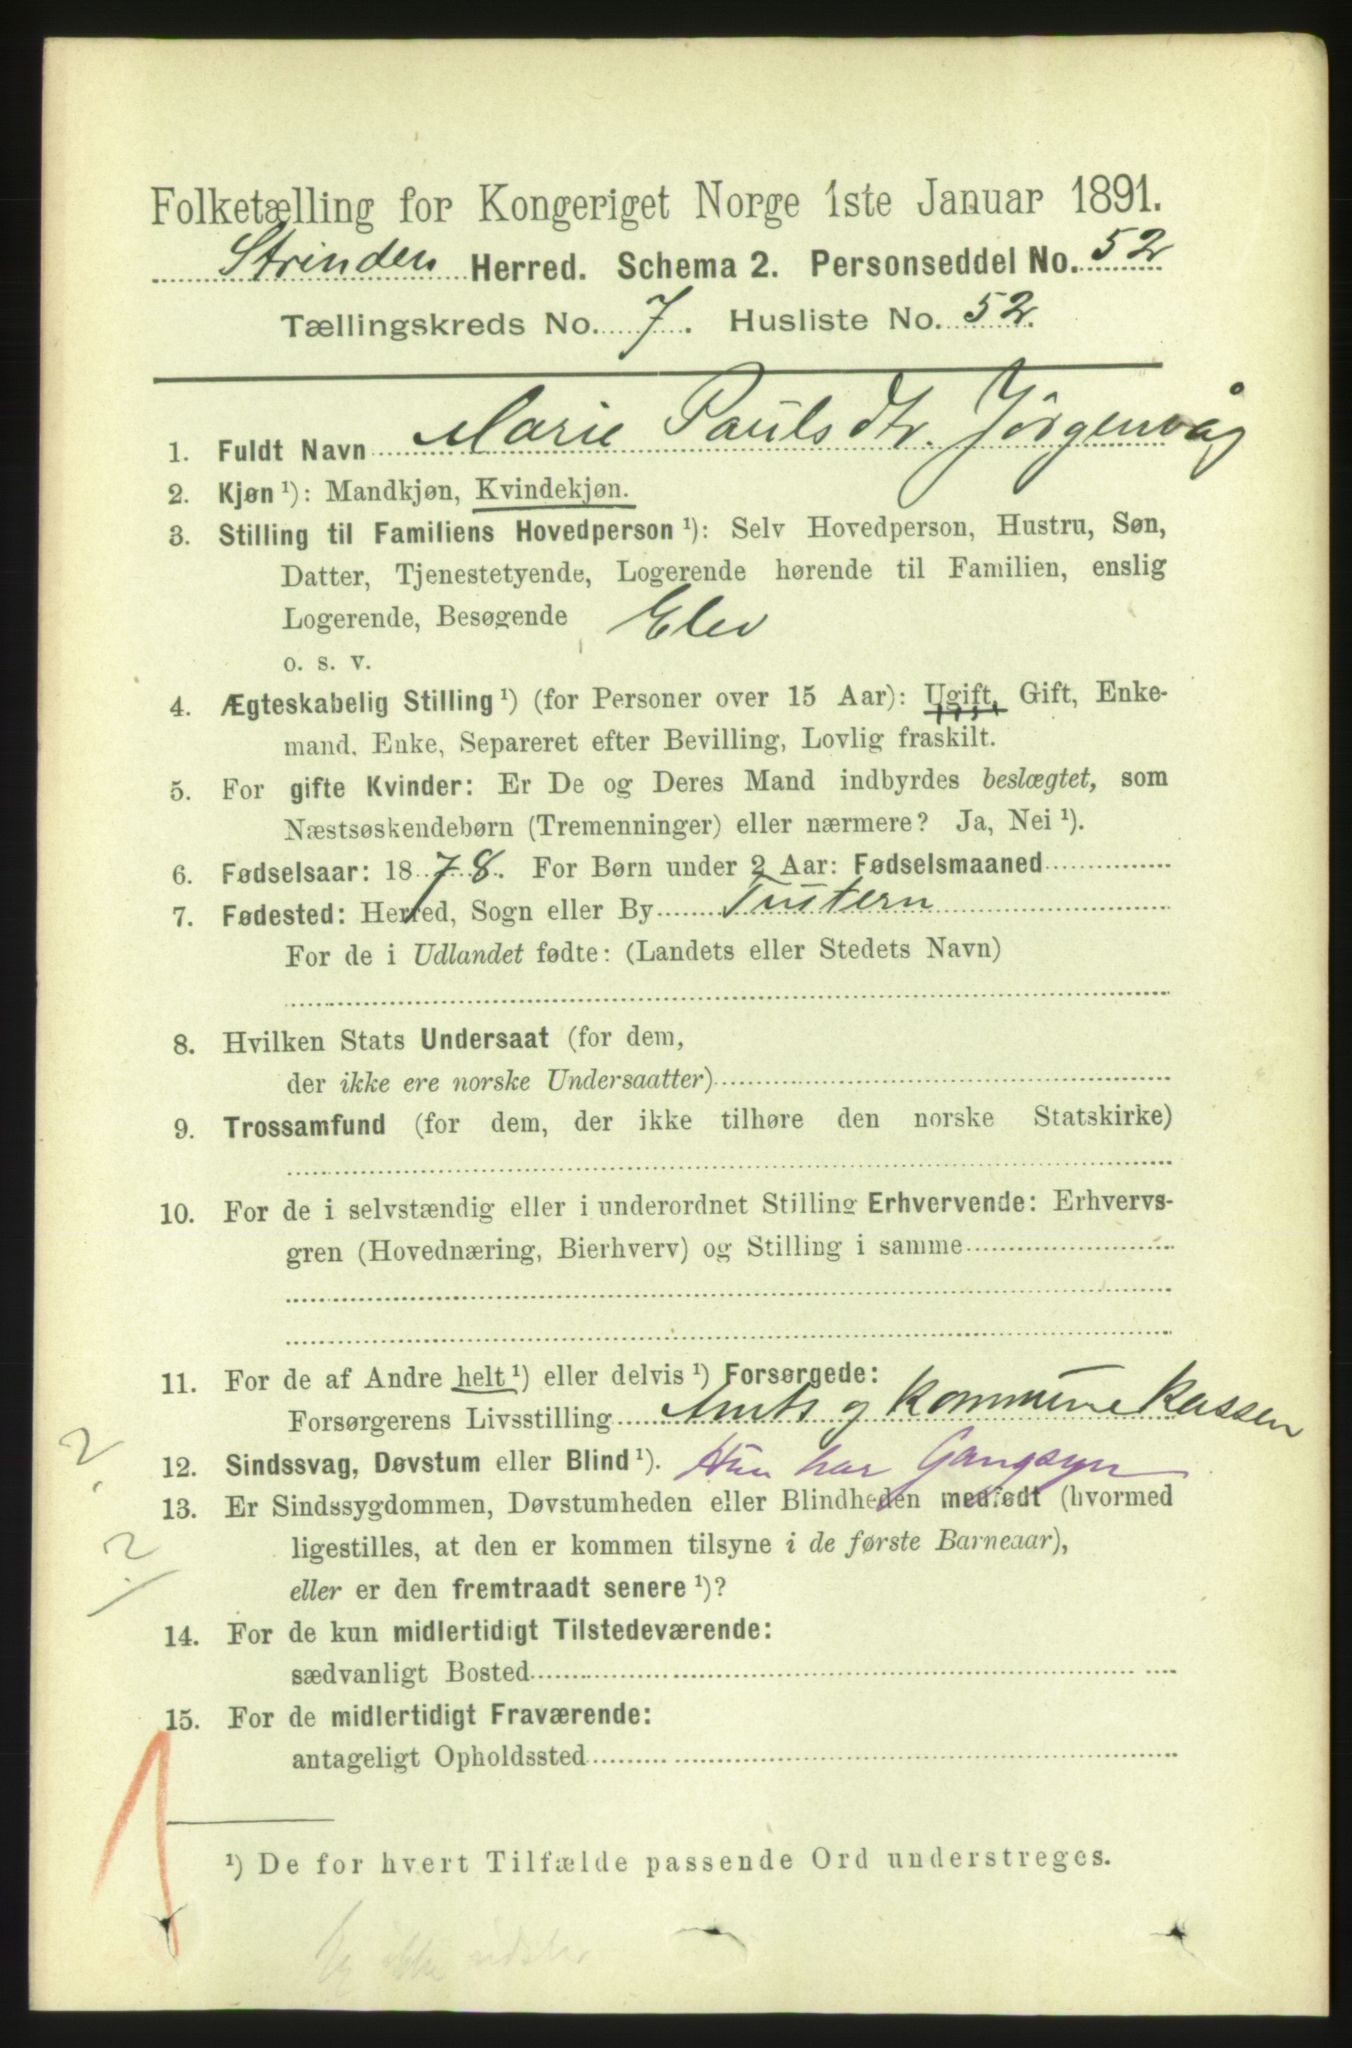 Folketælling for Kongeriget Norge 1ste Januar 1891.
Strinden Herred. Schema 2. Personseddel No. 52
Tællingskreds No. 7. Husliste No. 52.
1. Fuldt Navn Marie Paulsdtr. Jörgenvåg
2. Kjøn ¹): Mandkjøn, Kvindekjøn.
3. Stilling til Familiens Hovedperson ¹): Selv Hovedperson, Hustru, Søn,
Datter, Tjenestetyende, Logerende hørende til Familien, enslig
Logerende, Besøgende Elev
o. s. v.
4. Ægteskabelig Stilling ¹) (for Personer over 15 Aar): Ugift, Gift, Enke-
mand, Enke, Separeret efter Bevilling, Lovlig fraskilt.
5. For gifte Kvinder: Er De og Deres Mand indbyrdes beslægtet, som
Næstsøskendebørn (Tremenninger) eller nærmere? Ja, Nei ¹).
6. Fødselsaar: 1878. For Børn under 2 Aar: Fødselsmaaned
7. Fødested: Herred, Sogn eller By Tustern
For de i Udlandet fødte: (Landets eller Stedets Navn)
8. Hvilken Stats Undersaat (for dem,
der ikke ere norske Undersaatter)
9. Trossamfund (for dem, der ikke tilhøre den norske Statskirke)
10. For de i selvstændig eller i underordnet Stilling Erhvervende: Erhvervs-
gren (Hovednæring, Bierhverv) og Stilling i samme
11. For de af Andre helt ¹) eller delvis ¹) Forsørgede:
Forsørgerens Livsstilling Amts og Kommunekassen
12. Sindssvag, Døvstum eller Blind ¹). Hun har Gangsyn
13. Er Sindssygdommen, Døvstumheden eller Blindheden medfødt (hvormed
ligestilles, at den er kommen tilsyne i de første Barneaar),
eller er den fremtraadt senere ¹)?
14. For de kun midlertidigt Tilstedeværende:
sædvanligt Bosted
15. For de midlertidigt Fraværende:
antageligt Opholdssted
¹) De for hvert Tilfælde passende Ord understreges.